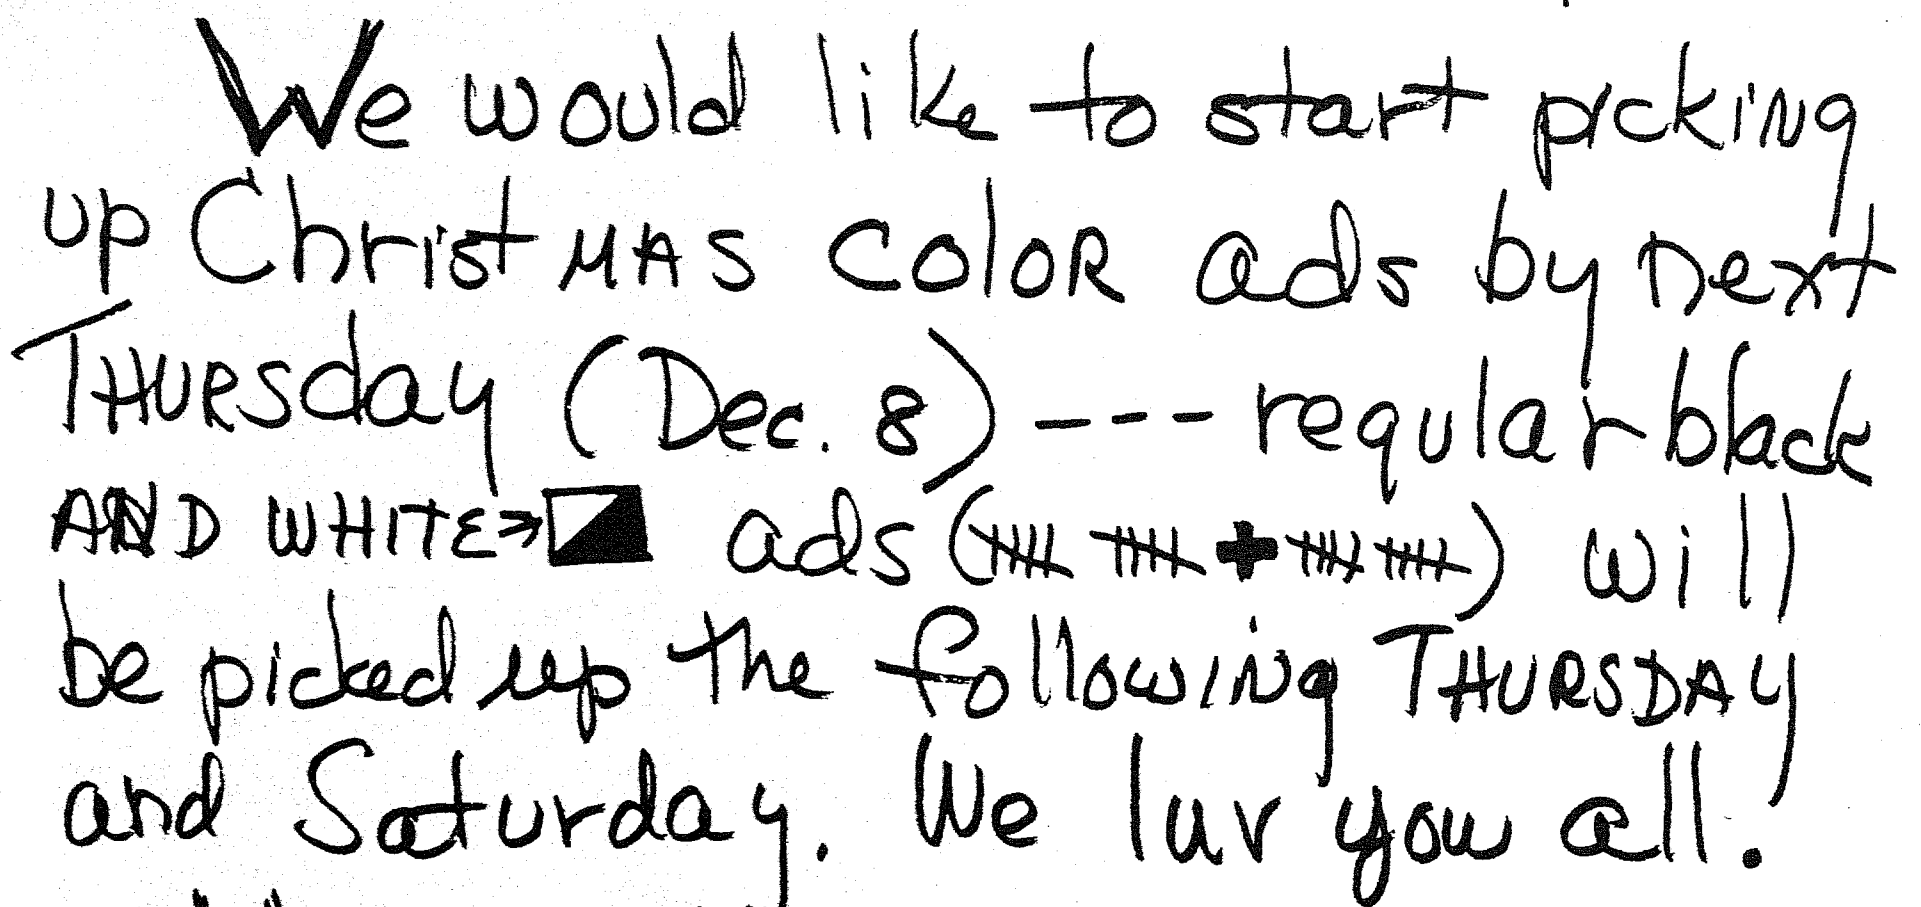 We would like to start picking
up ChristMAS COlOR ads by next
THURSday (Dec. 8) --- regular black
AND WHITE ads ( + ) will
be picked up the following THURSDAY
and Saturday. We luv you all.